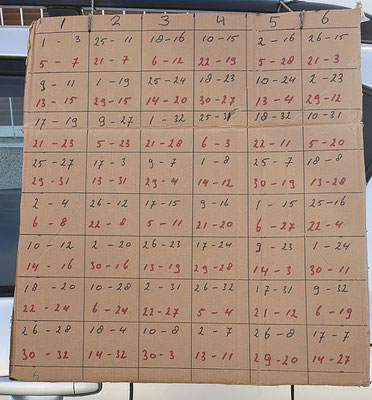 1 2 3 4 5 6
1 - 3 25 - 11 18 - 16 10 - 15 2 - 16 26 - 15
5 - 7 21 - 7 6 - 12 22 - 19 5 - 28 21 - 3
9 - 11 1 - 19 25 - 24 18 - 23 10 - 24 2 - 23
13 - 15 29 - 15 14 - 20 30 - 27 13 - 4 29 - 12
17 - 19 9 - 27 1 - 32 25 - 31 18 - 32 10 - 31
21 - 23 5 - 23 21 - 28 6 - 3 22 - 11 5 - 20
25 - 27 17 - 3 9 - 7 1 - 8 25 - 7 18 - 8
29 - 31 13 - 31 29 - 4 14 - 12 30 - 19 13 - 28
2 - 4 26 - 12 17 - 15 9 - 16 1 - 15 25 - 16
6 - 8 22 - 8 5 - 11 21 - 20 6 - 27 22 - 4
10 - 12 2 - 20 26 - 23 17 - 24 9 - 23 1 - 24
14 - 16 30 - 16 13 - 19 29 - 28 14 - 3 30 - 11
18 - 20 10 - 28 2 - 31 26 - 32 17 - 31 9 - 32
22 - 24 6 - 24 22 - 27 5 - 4 21 - 12 6 - 19
26 - 28 18 - 4 10 - 8 2 - 7 26 - 8 17 - 7
30 - 32 14 - 32 30 - 3 13 - 11 29 - 20 14 - 27